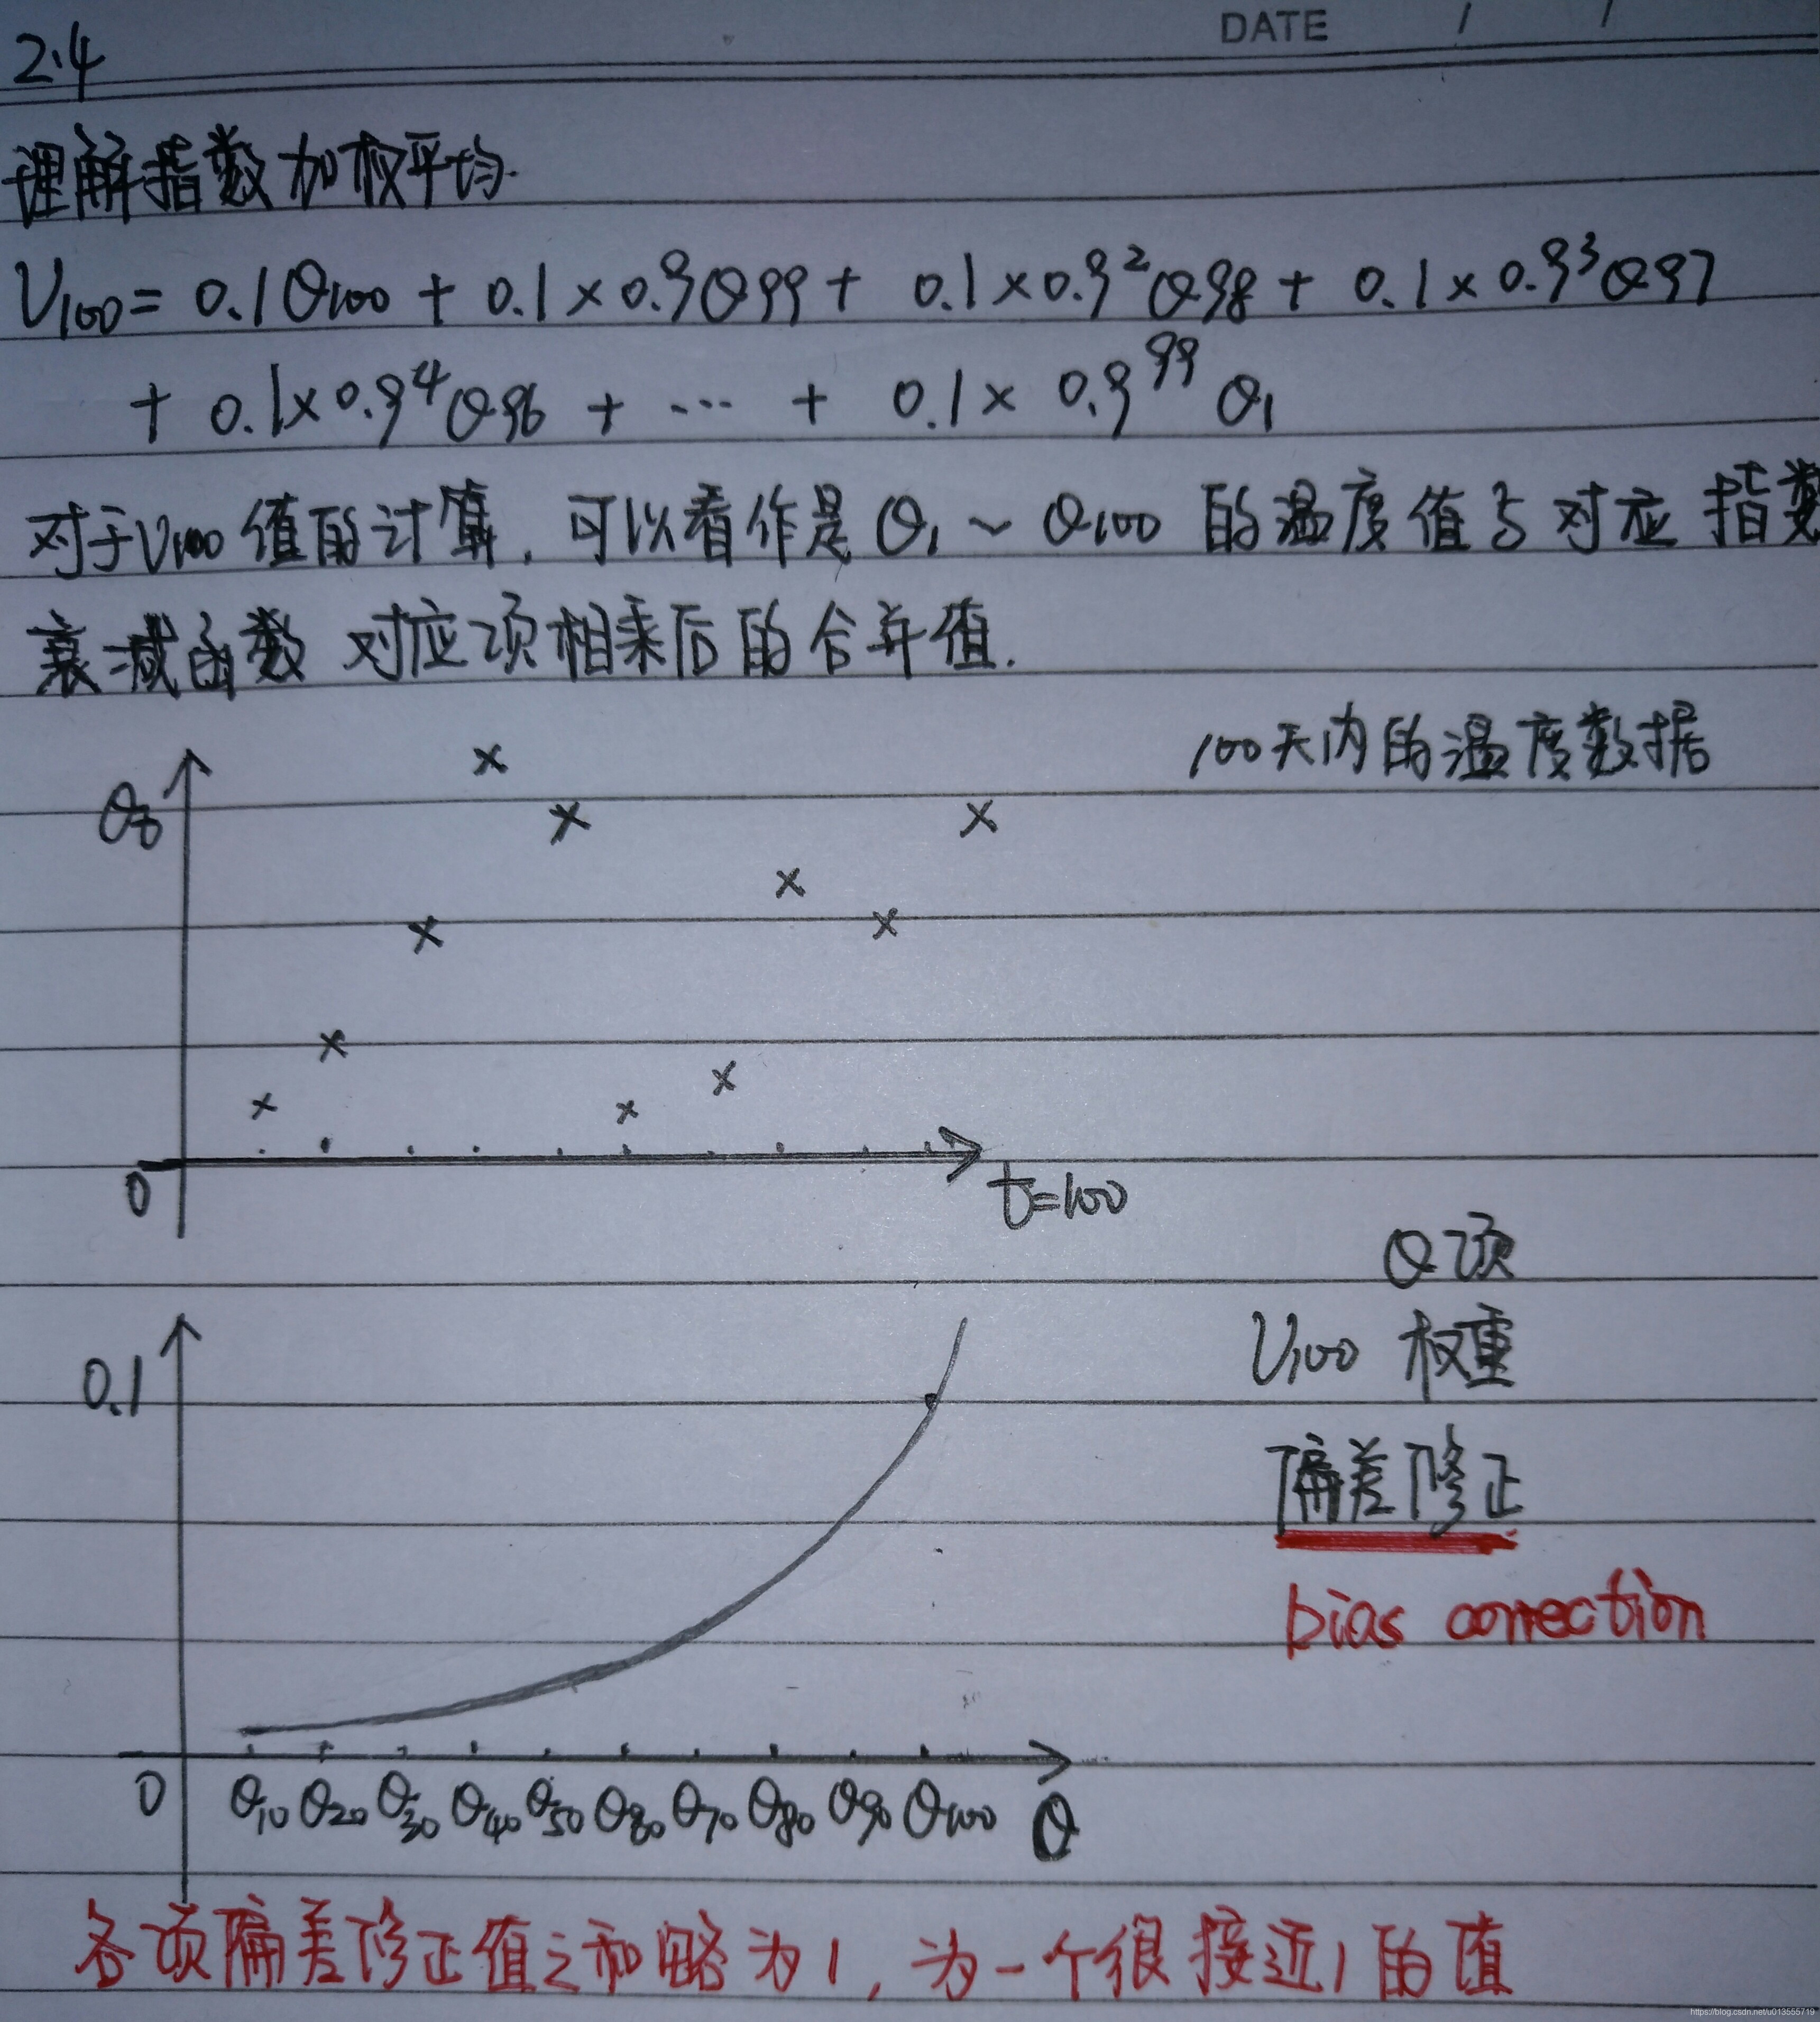 DATE / /
2.4
理解指数加权平均.
V₁₀₀ = 0.1θ₁₀₀ + 0.1×0.9θ₉₉ + 0.1×0.9²θ₉₈ + 0.1×0.9³θ₉₇
+ 0.1×0.9⁴θ₉₆ + ... + 0.1×0.9⁹⁹θ₁
对于V₁₀₀值的计算,可以看作是θ₁~θ₁₀₀的温度值与对应指数
衰减函数对应项相乘后的合并值.
100天内的温度数据
0
t=100
θ项
V₁₀₀权重
0.1
偏差修正
bias correction
0 θ₁₀ θ₂₀ θ₃₀ θ₄₀ θ₅₀ θ₆₀ θ₇₀ θ₈₀ θ₉₀ θ₁₀₀ θ
各项偏差修正值之和略为1,为一个很接近1的值
https://blog.csdn.net/u013555719